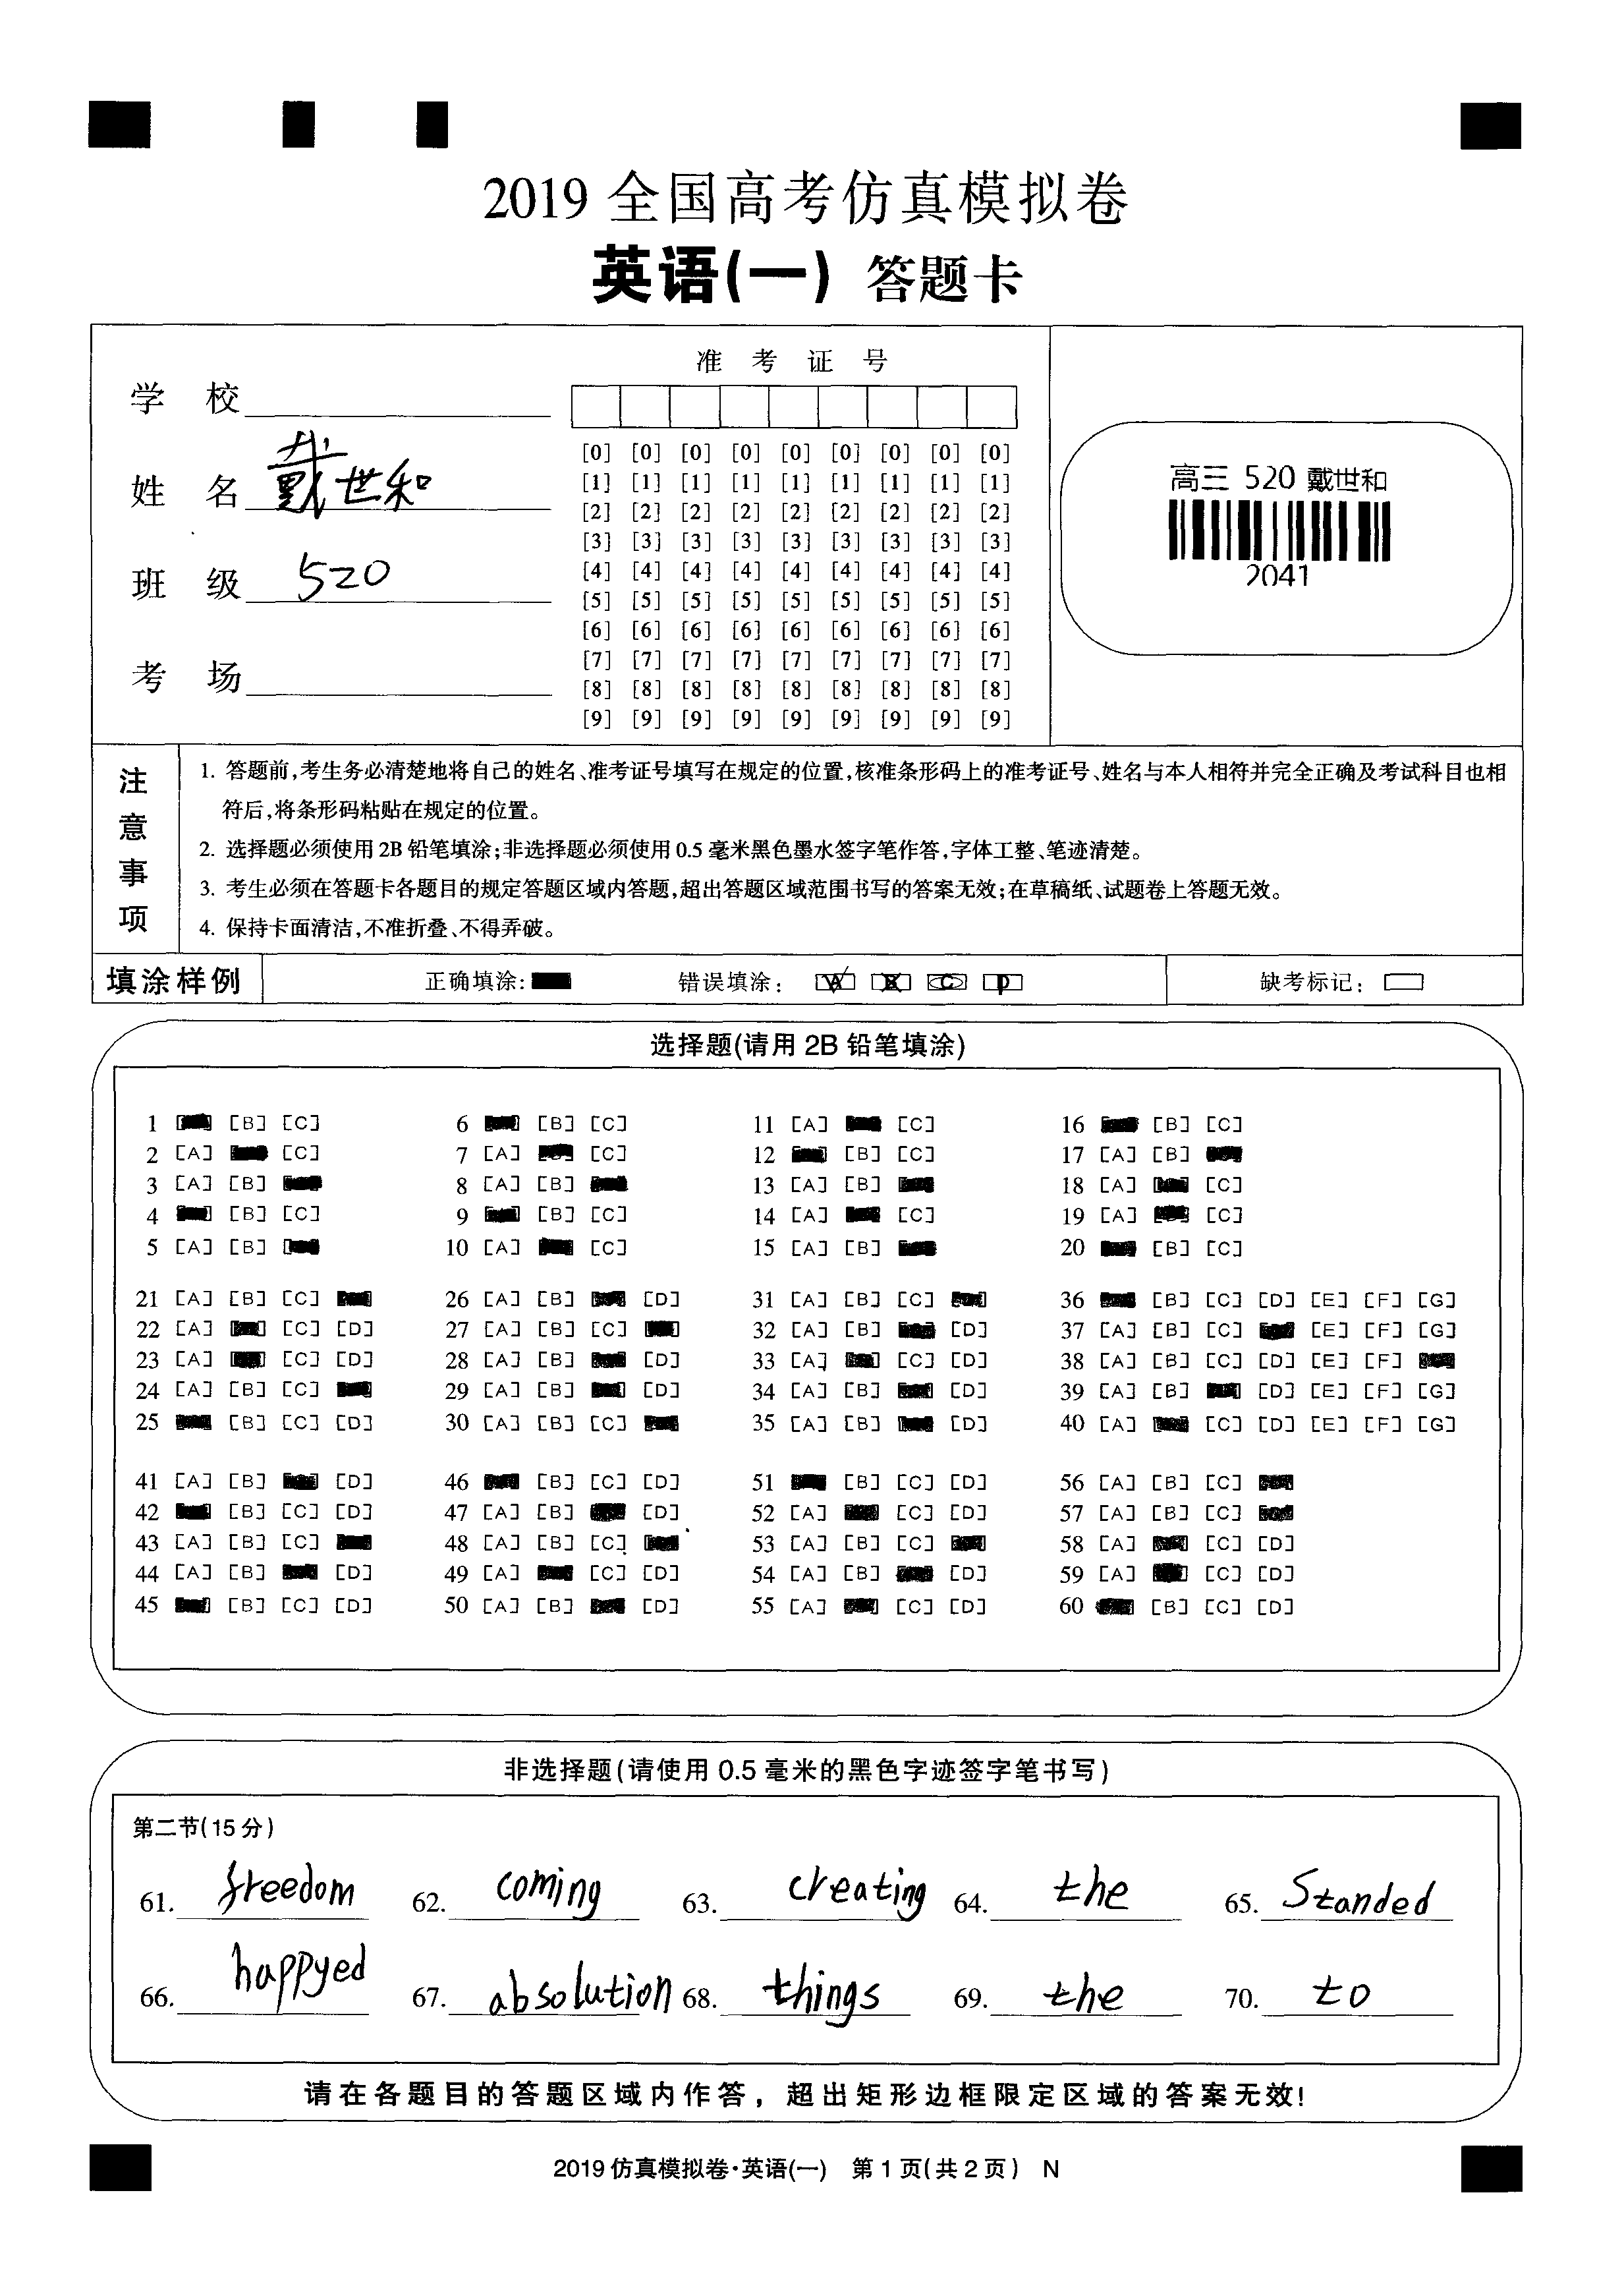 2019 全国高考仿真模拟卷
英语(一) 答题卡
准 考 证 号
学 校
姓 名 戴世和
班 级 520
考 场
[0] [0] [0] [0] [0] [0] [0] [0] [0]
[1] [1] [1] [1] [1] [1] [1] [1] [1]
[2] [2] [2] [2] [2] [2] [2] [2] [2]
[3] [3] [3] [3] [3] [3] [3] [3] [3]
[4] [4] [4] [4] [4] [4] [4] [4] [4]
[5] [5] [5] [5] [5] [5] [5] [5] [5]
[6] [6] [6] [6] [6] [6] [6] [6] [6]
[7] [7] [7] [7] [7] [7] [7] [7] [7]
[8] [8] [8] [8] [8] [8] [8] [8] [8]
[9] [9] [9] [9] [9] [9] [9] [9] [9]
高三 520 戴世和
2041
注意事项
1. 答题前,考生务必清楚地将自己的姓名、准考证号填写在规定的位置,核准条形码上的准考证号、姓名与本人相符并完全正确及考试科目也相
符后,将条形码粘贴在规定的位置。
2. 选择题必须使用2B铅笔填涂;非选择题必须使用0.5毫米黑色墨水签字笔作答,字体工整、笔迹清楚。
3. 考生必须在答题卡各题目的规定答题区域内答题,超出答题区域范围书写的答案无效;在草稿纸、试题卷上答题无效。
4. 保持卡面清洁,不准折叠、不得弄破。
填涂样例 正确填涂: 错误填涂: A B C D 缺考标记:
选择题(请用 2B 铅笔填涂)
1 [B] [C] 6 [B] [C] 11 [A] [C] 16 [B] [C]
2 [A] [C] 7 [A] [C] 12 [B] [C] 17 [A] [B]
3 [A] [B] 8 [A] [B] 13 [A] [B] 18 [A] [C]
4 [B] [C] 9 [B] [C] 14 [A] [C] 19 [A] [C]
5 [A] [B] 10 [A] [C] 15 [A] [B] 20 [B] [C]
21 [A] [B] [C] 26 [A] [B] [D] 31 [A] [B] [C] 36 [B] [C] [D] [E] [F] [G]
22 [A] [C] [D] 27 [A] [B] [C] 32 [A] [B] [D] 37 [A] [B] [C] [E] [F] [G]
23 [A] [C] [D] 28 [A] [B] [D] 33 [A] [C] [D] 38 [A] [B] [C] [D] [E] [F]
24 [A] [B] [C] 29 [A] [B] [D] 34 [A] [B] [D] 39 [A] [B] [D] [E] [F] [G]
25 [B] [C] [D] 30 [A] [B] [C] 35 [A] [B] [D] 40 [A] [C] [D] [E] [F] [G]
41 [A] [B] [D] 46 [B] [C] [D] 51 [B] [C] [D] 56 [A] [B] [C]
42 [B] [C] [D] 47 [A] [B] [D] 52 [A] [C] [D] 57 [A] [B] [C]
43 [A] [B] [C] 48 [A] [B] [C] 53 [A] [B] [C] 58 [A] [C] [D]
44 [A] [B] [D] 49 [A] [C] [D] 54 [A] [B] [D] 59 [A] [C] [D]
45 [B] [C] [D] 50 [A] [B] [D] 55 [A] [C] [D] 60 [B] [C] [D]
非选择题(请使用 0.5 毫米的黑色字迹签字笔书写)
第二节(15 分)
61. freedom 62. coming 63. creating 64. the 65. Standed
66. happyed 67. absolution 68. things 69. the 70. to
请在各题目的答题区域内作答，超出矩形边框限定区域的答案无效!
2019 仿真模拟卷·英语(一) 第 1 页(共 2 页) N